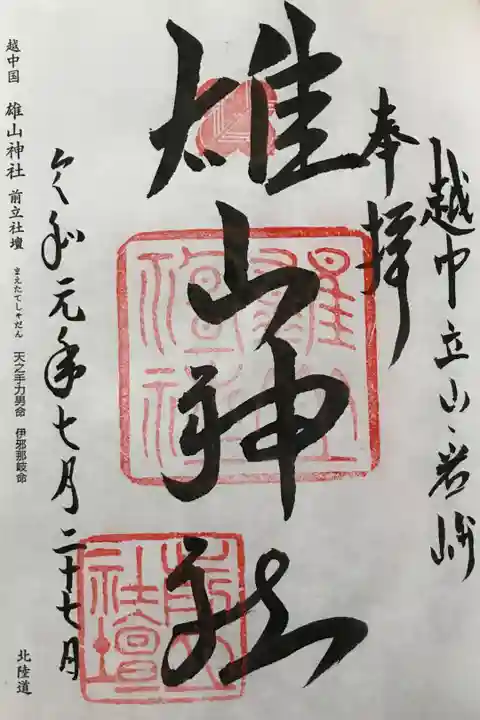 越中立山岩峅
奉拝
雄山神社
雄山神社
前立社壇
令和元年七月二十七日
越中国 雄山神社 前立社壇 まえたてしゃだん 天之手力男命 伊邪那岐命 北陸道